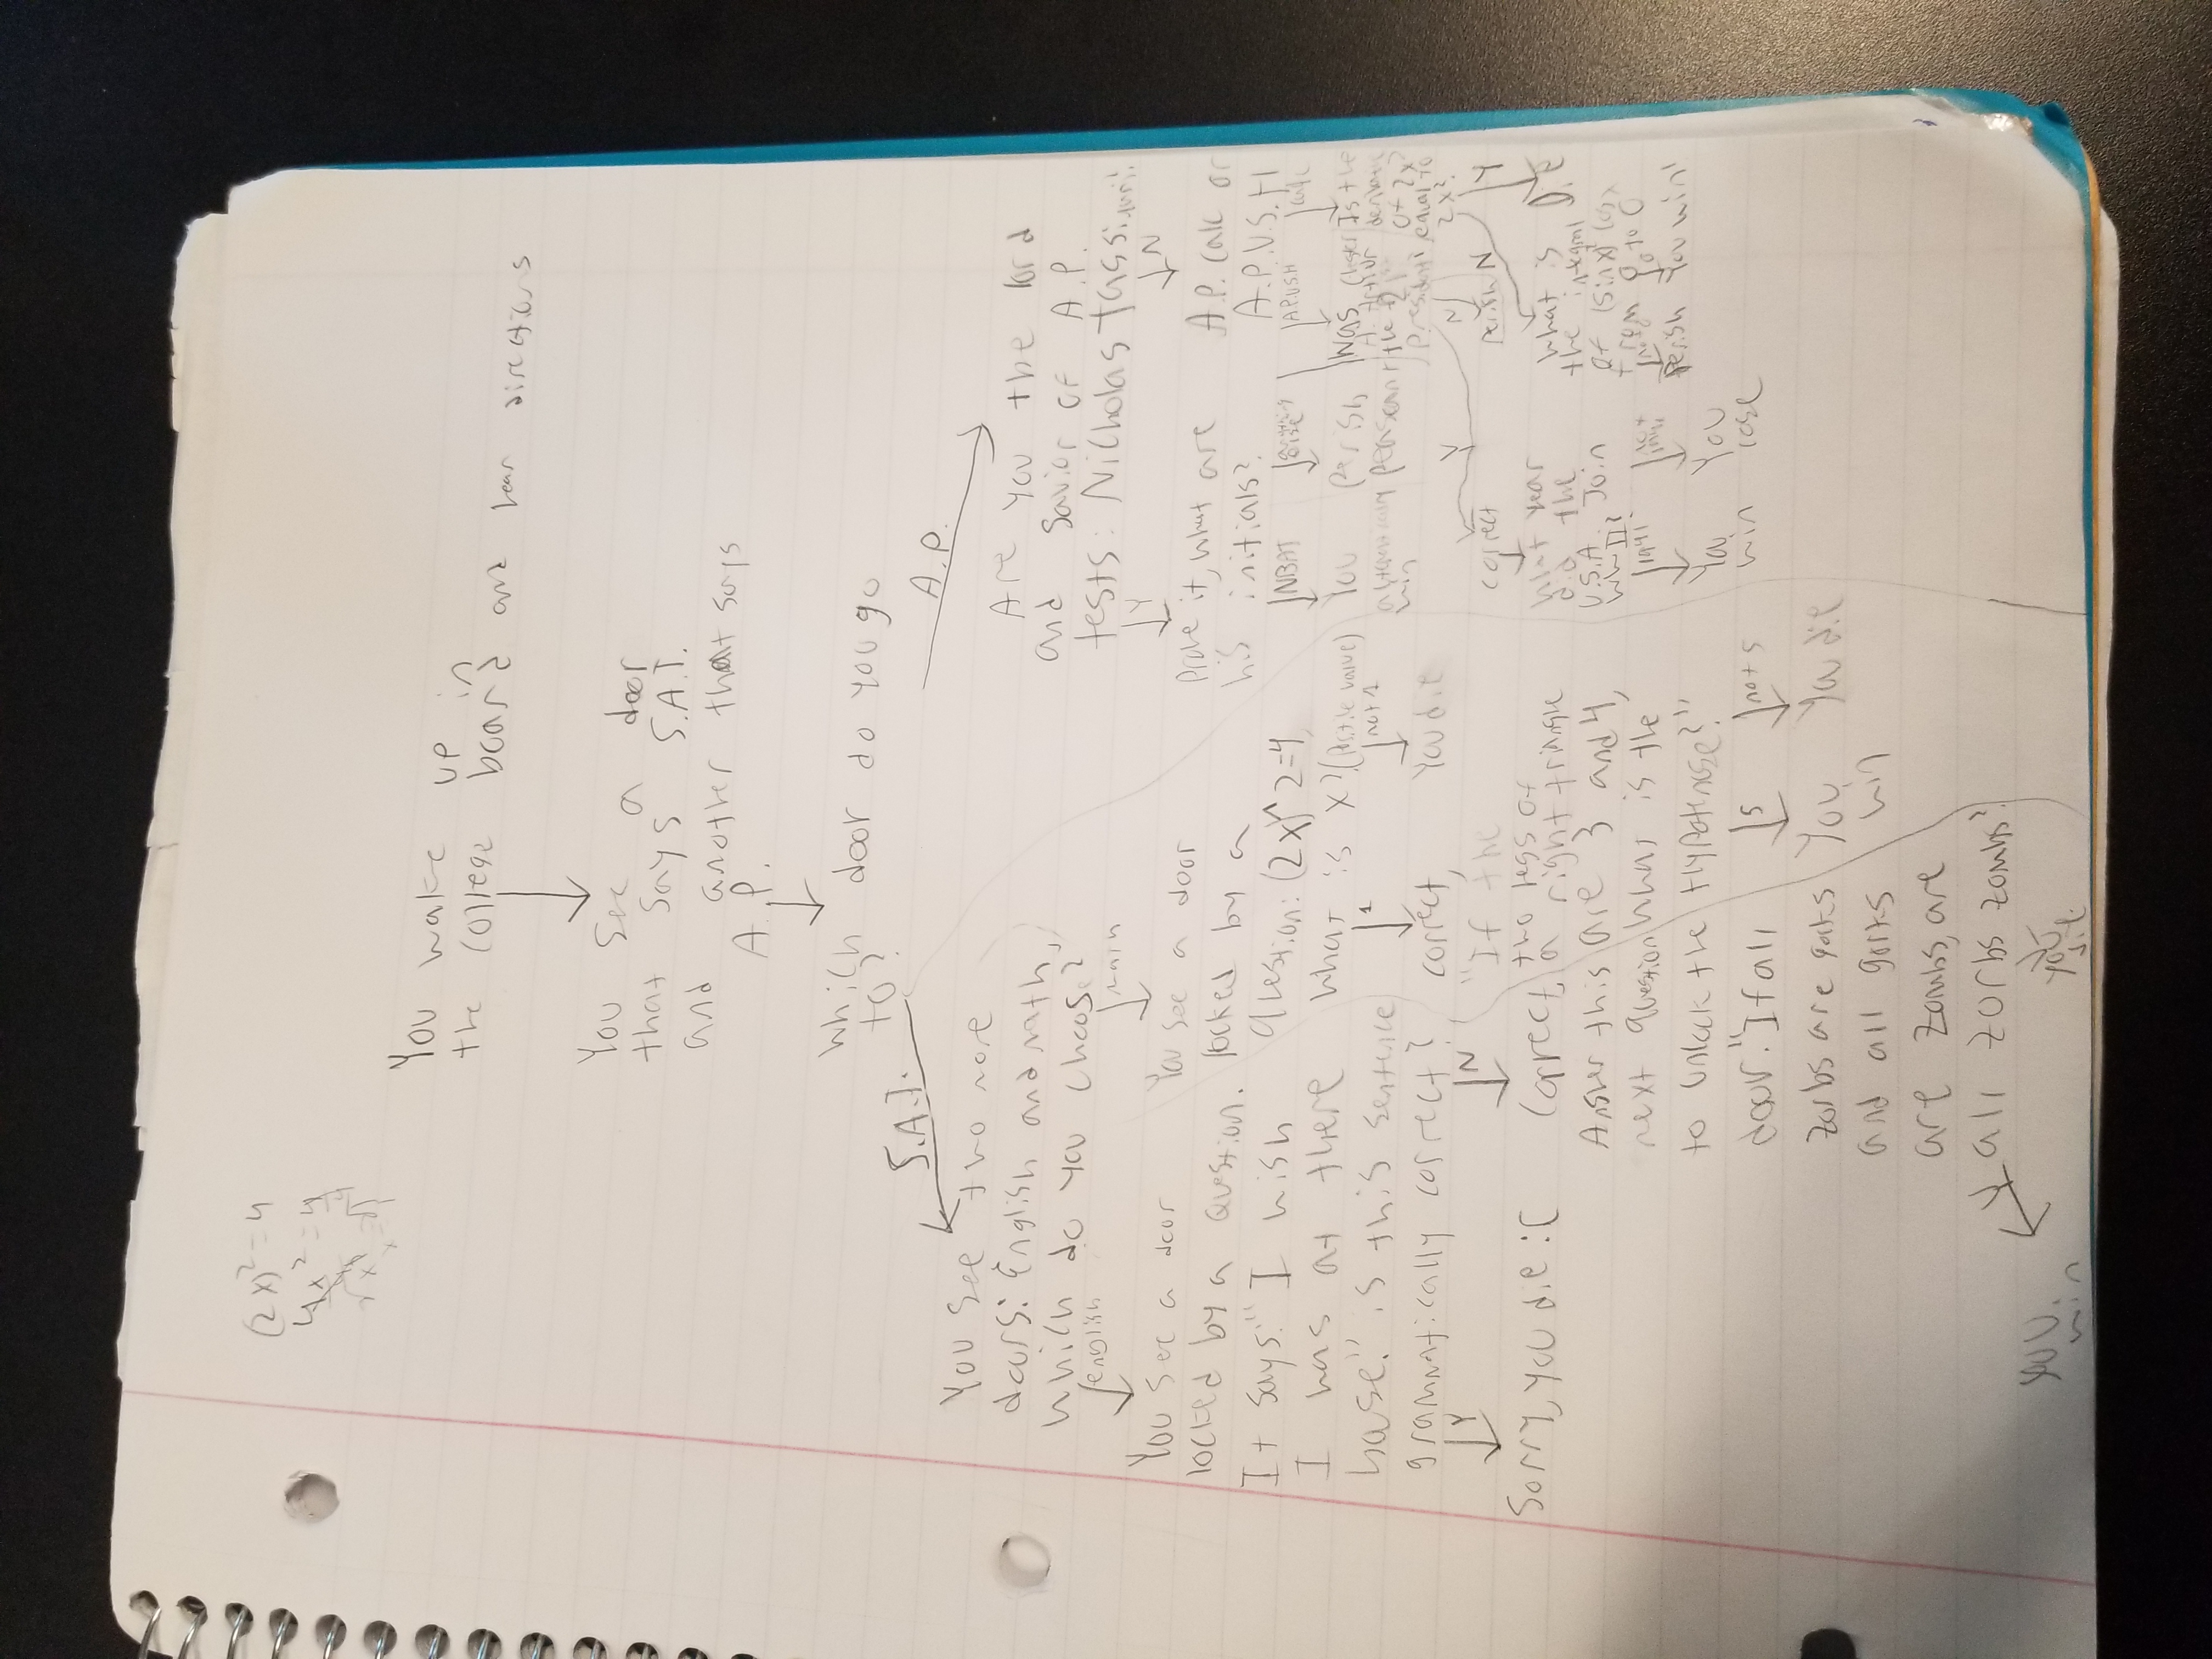 (2x)² = 4
4x² = 4
You wake up in
the college board and hear directions
You see a door
that says S.A.T.
and another that says
A.P.
Which door do you go
to?
S.A.T.
A.P.
You see two more
doors: English and math,
which do you choose?
english
math
You see a door
locked by a question.
It says: "I wish
I was at there
base." is this sentence
grammatically correct?
Y
N
Sorry, you die :(
Correct,
Answer this
next question
to unlock the
door. "If all
zorbs are gorks
and all gorks
are zombs, are
all zorbs zombs?
Y
You
win
N
you
die
You see a door
locked by a
question: (2x)^2=4,
what is x? (Positive value)
1
not 1
correct,
You die
"If the
two legs of
a right triangle
are 3 and 4,
what is the
Hypotenuse?"
5
not 5
You
win
You die
Are you the lord
and savior of A.P.
tests: Nicholas
Y
N
Prove it, what are
his initials?
NBAT
You
automatically
win
Perish
peasant
A.P. Calc or
A.P.U.S.H
A.P.U.S.H
calc
Was Chester
A. Arthur
the 21
President?
Y
N
correct
perish
What year
did the
U.S.A. Join
WWII?
1941
not
1941
You
win
You
lose
Is the
derivative
of 2x²
equal to
2x?
N
Y
Die
What is
the integral
of (sinx) cosx
from 0 to 0
not 0
0
Perish
You win!